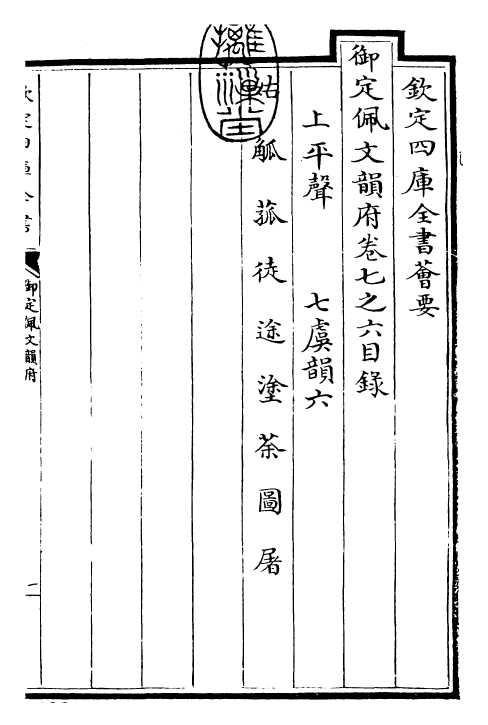 欽定四庫全書薈要
御定佩文韻府卷七之六目錄
上平聲 七虞韻六
觚 菰 徒 途 塗 荼 圖 屠
御定佩文韻府